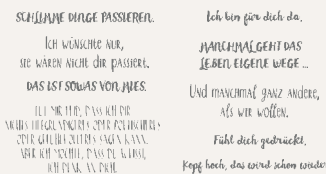 SCHLIMME DINGE PASSIEREN.
Ich wünschte nur,
sie wären nicht dir passiert.
DAS IST SOWAS VON MIES.
TUT MIR LEID, DASS ICH DIR
NICHTS INTELLIGENTERES ODER POETISCHERES
ODER
SAGEN KANN.
ABER ICH MÖCHTE, DASS DU WEISST,
ICH DENK AN DICH.
Ich bin für dich da.
MANCHMAL GEHT DAS
LEBEN EIGENE WEGE ...
Und manchmal ganz andere,
als wir wollen.
Fühl dich gedrückt.
Kopf hoch, das wird schon wieder